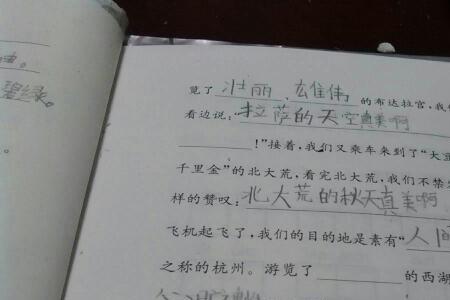 碧绿。
览了壮丽、雄伟的布达拉宫,我们
看边说:“拉萨的天空真美啊
!”接着,我们又乘车来到了“大豆
千里金”的北大荒,看完北大荒,我们不禁
样的赞叹:北大荒的秋天真美啊
飞机起飞了,我们的目的地是素有“人间
之称的杭州。游览了的西湖